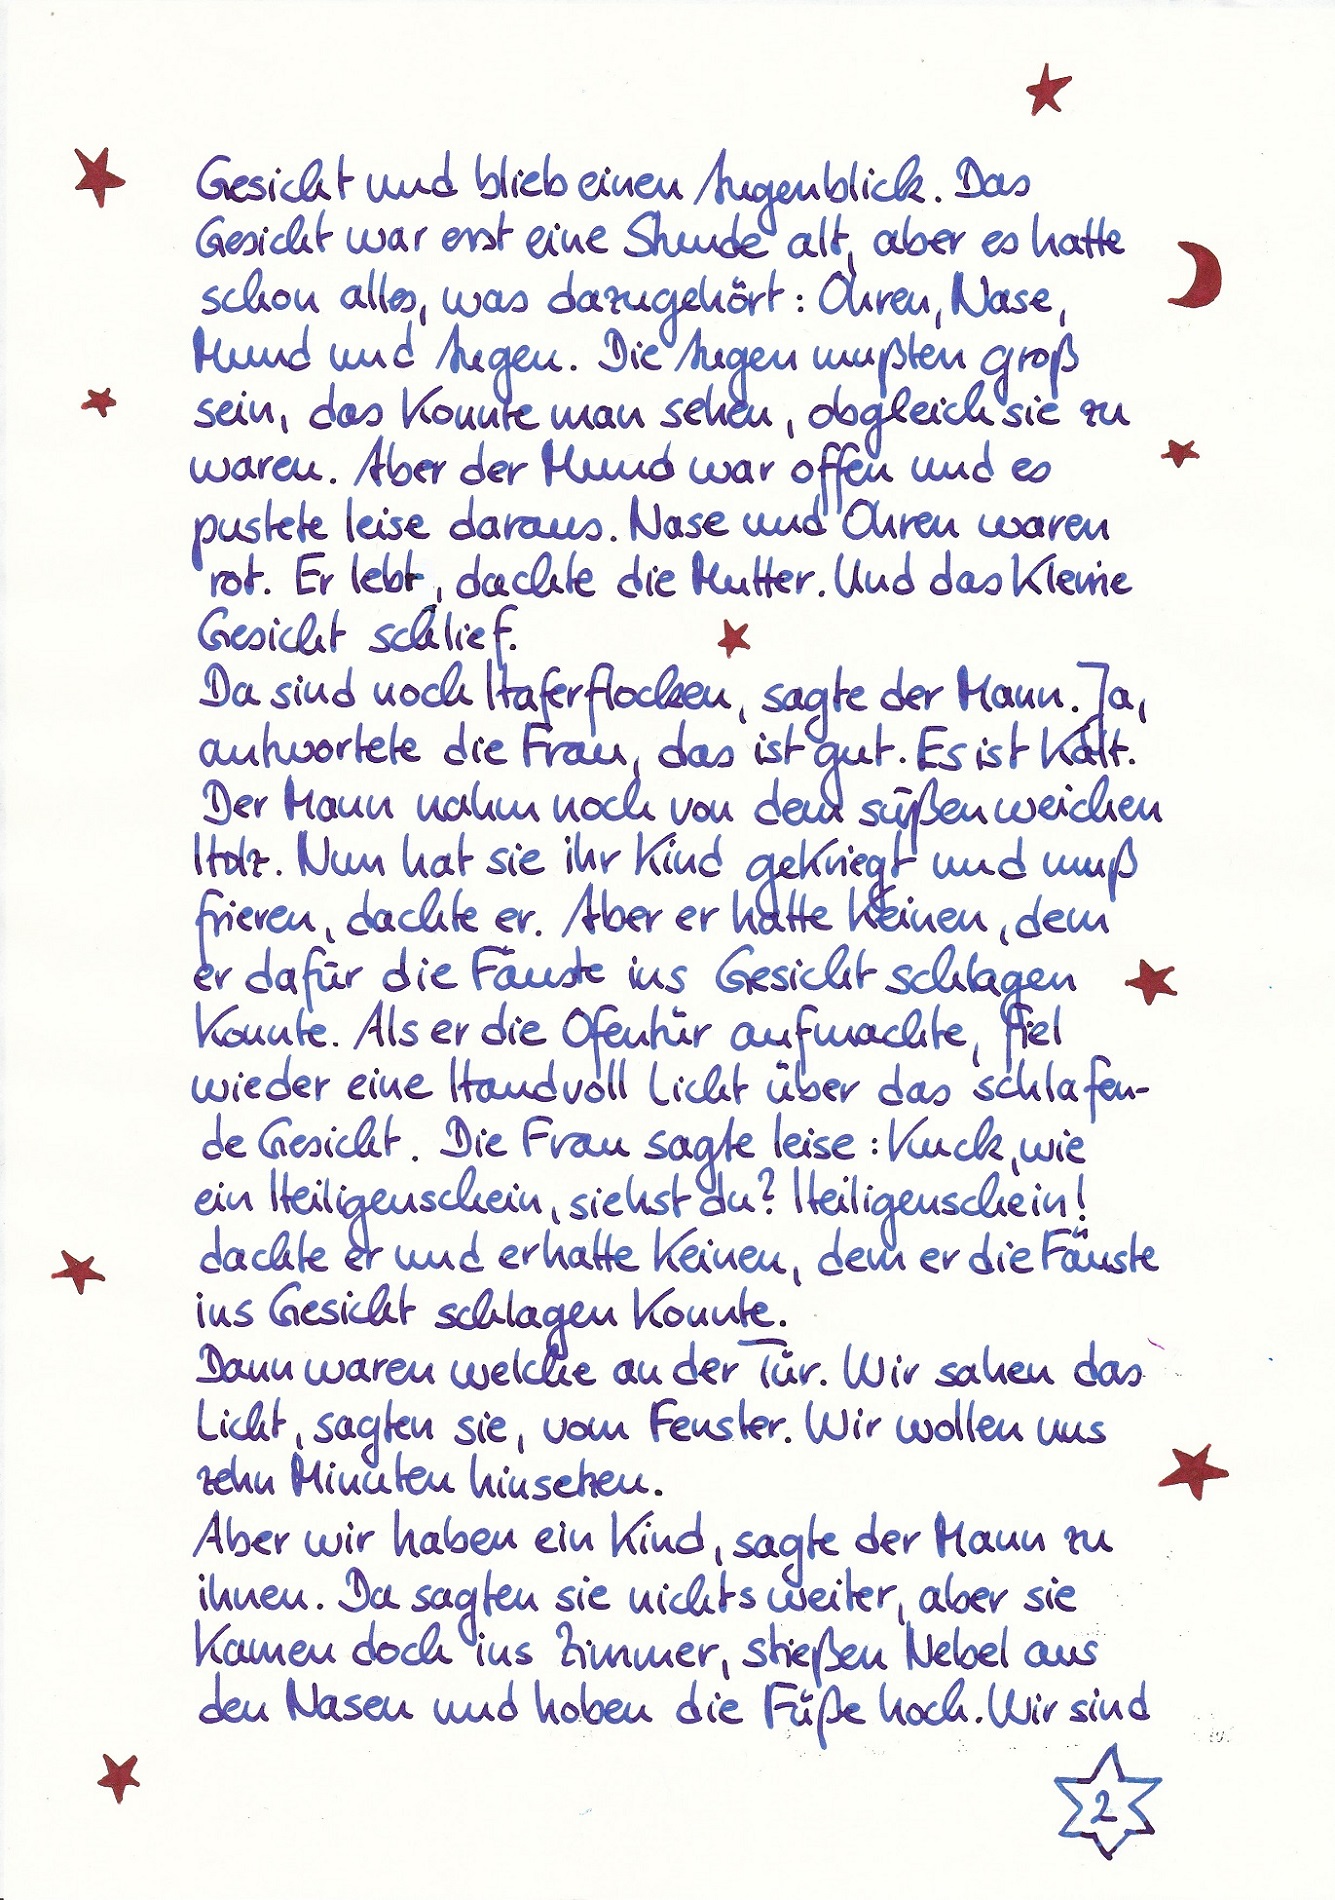 Gesicht und blieb einen Augenblick. Das
Gesicht war erst eine Stunde alt, aber es hatte
schon alles, was dazugehört: Ohren, Nase,
Mund und Augen. Die Augen mußten groß
sein, das konnte man sehen, obgleich sie zu
waren. Aber der Mund war offen und es
pustete leise daraus. Nase und Ohren waren
rot. Er lebt, dachte die Mutter. Und das kleine
Gesicht schlief.
Da sind noch Haferflocken, sagte der Mann. Ja,
antwortete die Frau, das ist gut. Es ist kalt.
Der Mann nahm noch von dem süßen weichen
Holz. Nun hat sie ihr Kind gekriegt und muß
frieren, dachte er. Aber er hatte keinen, dem
er dafür die Fäuste ins Gesicht schlagen
konnte. Als er die Ofentür aufmachte, fiel
wieder eine Handvoll Licht über das schlafen-
de Gesicht. Die Frau sagte leise: Kuck, wie
ein Heiligenschein, siehst du? Heiligenschein!
dachte er und er hatte keinen, dem er die Fäuste
ins Gesicht schlagen konnte.
Dann waren welche an der Tür. Wir sahen das
Licht, sagten sie, vom Fenster. Wir wollen uns
zehn Minuten hinsetzen.
Aber wir haben ein Kind, sagte der Mann zu
ihnen. Da sagten sie nichts weiter, aber sie
kamen doch ins Zimmer, stießen Nebel aus
den Nasen und hoben die Füße hoch. Wir sind
2